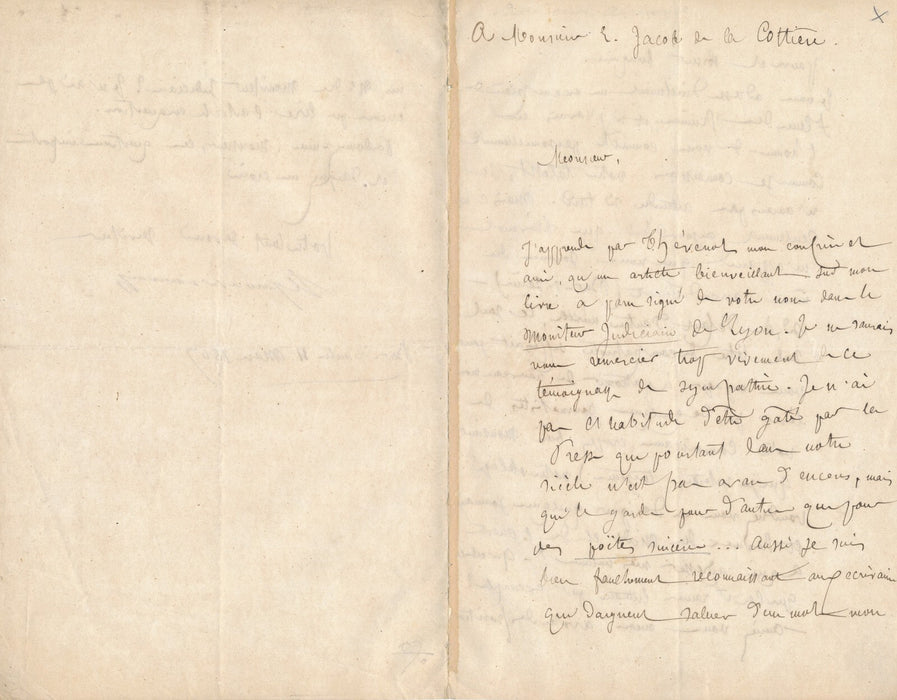 A Monsieur E. Jacob de la Cottière.
Monsieur,
J'apprends par Thévenot mon confrère et
ami, qu'un article bienveillant sur mon
livre a paru signé de votre nom dans le
Moniteur Judiciaire de Lyon. Je ne saurais
vous remercier trop vivement de ce
témoignage de sympathie. Je n'ai
pas l'habitude d'être gâté par la
Presse qui pourtant dans notre
siècle n'est pas avare d'encens, mais
qu'elle garde pour d'autres que pour
des poëtes sincères... Aussi je suis
bien franchement reconnaissant aux écrivains
qui daignent saluer d'un mot mon